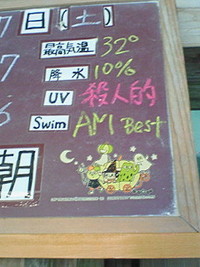 7日(土)
最高気温 32°
7 降水 10%
6 UV 殺人的
Swim AM Best
朝